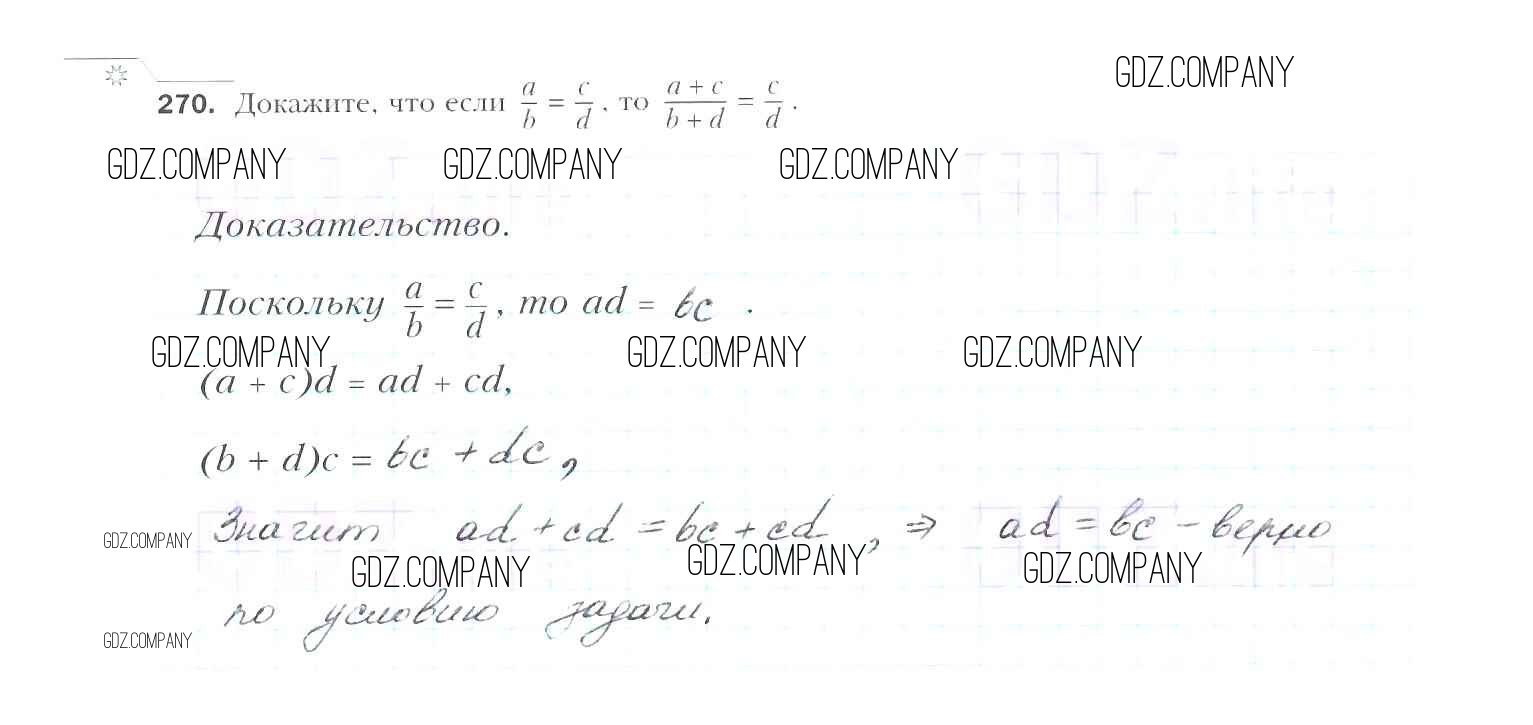 GDZ.COMPANY
270. Докажите, что если a/b = c/d, то (a + c)/(b + d) = c/d.
GDZ.COMPANY GDZ.COMPANY GDZ.COMPANY
Доказательство.
Поскольку a/b = c/d, то ad = bc .
GDZ.COMPANY GDZ.COMPANY GDZ.COMPANY
(a + c)d = ad + cd,
(b + d)c = bc + dc,
GDZ.COMPANY Значит ad + cd = bc + cd, ⇒ ad = bc – верно
GDZ.COMPANY GDZ.COMPANY GDZ.COMPANY
по условию задачи.
GDZ.COMPANY